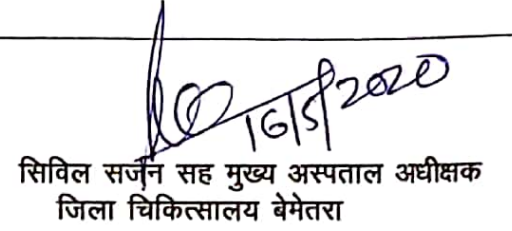 16/5/2020
सिविल सर्जन सह मुख्य अस्पताल अधीक्षक
जिला चिकित्सालय बेमेतरा